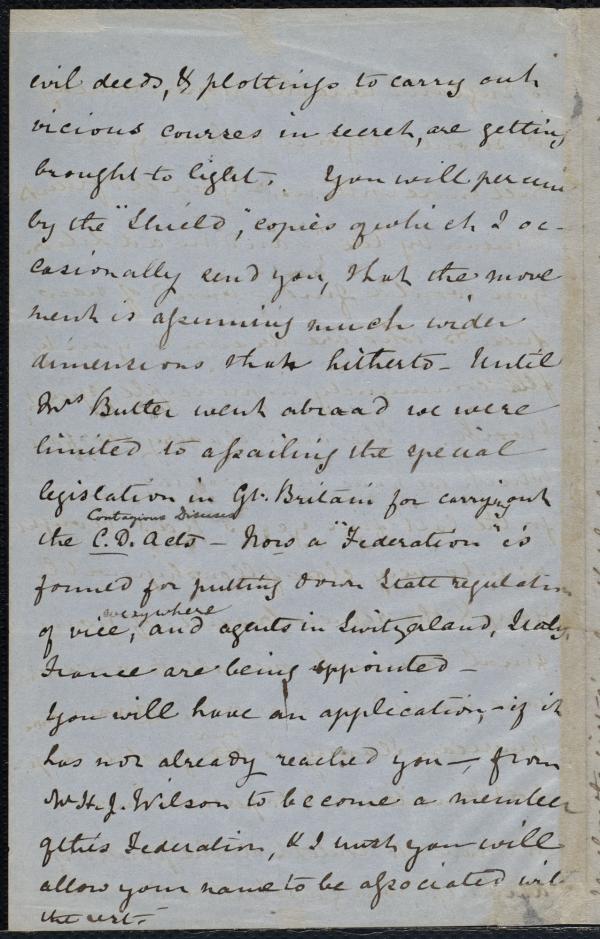 evil deeds, & plottings to carry out
vicious courses in secret, are getting
brought to light. You will perceive
by the "Shield", copies of which I oc-
casionally send you, that the move
ment is assuming much wider
dimensions than hitherto - Until
Mrs Butler went abroad we were
limited to assailing the special
legislation in Gt. Britain for carrying out
Contagious Diseases
the C.D. Acts - Now a "Federation" is
formed for putting down State regulation
everywhere
of vice, and agents in Switzerland, Italy,
France are being appointed -
You will have an application, - if it
has not already reached you -, from
Mr H. J. Wilson to become a member
of this Federation, & I wish you will
allow your name to be associated with
the rest -